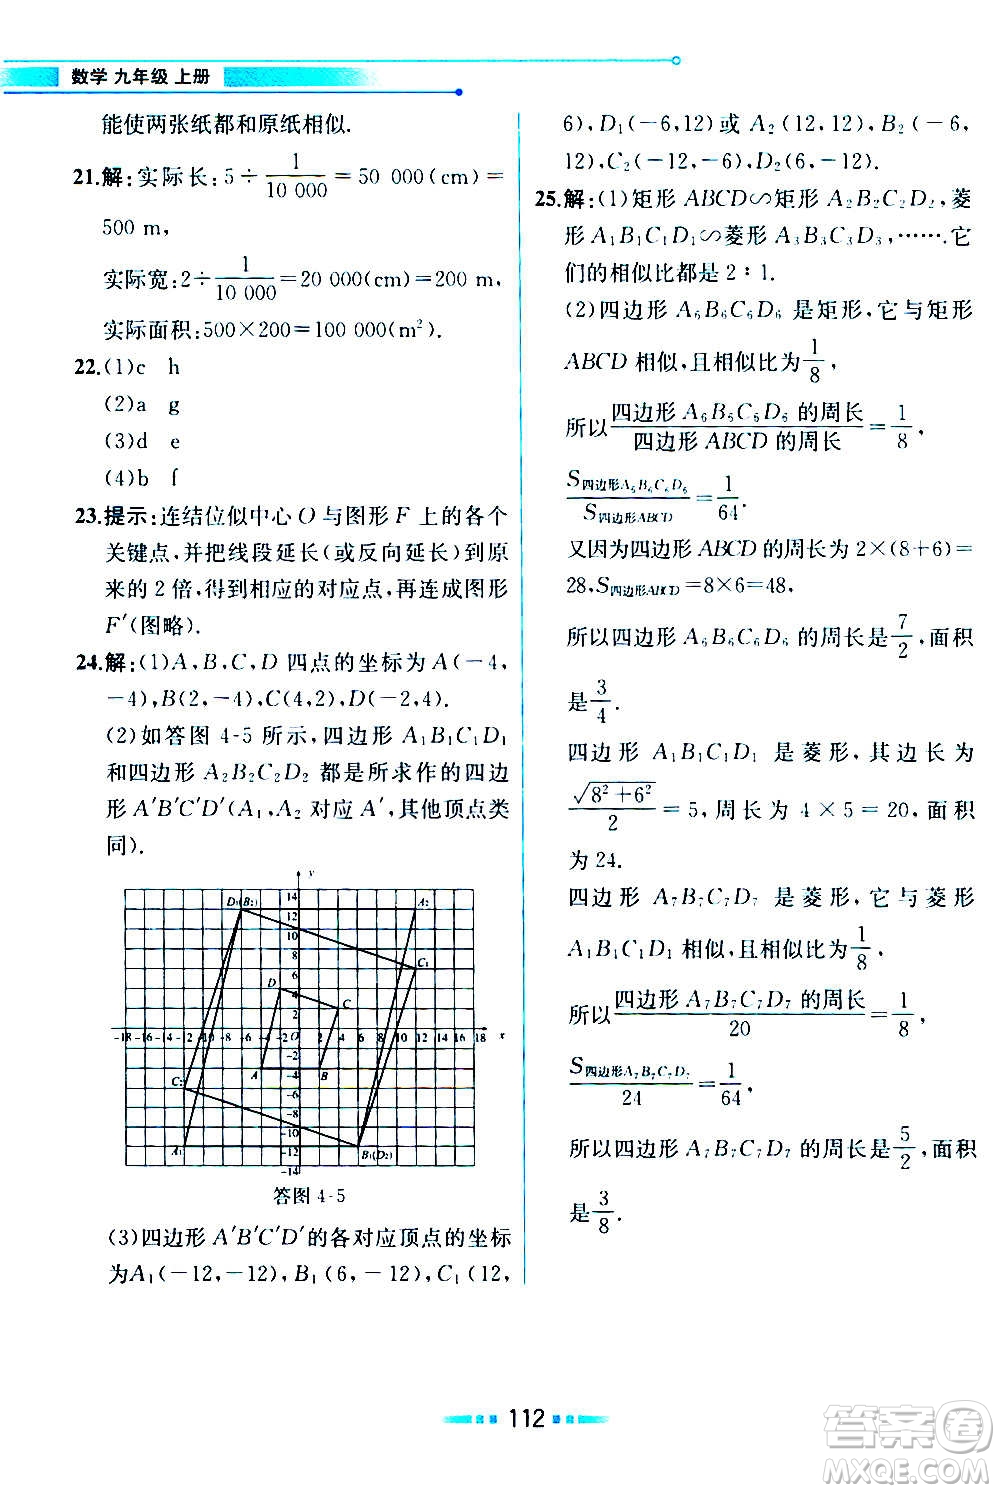 数学 九年级 上册
能使两张纸都和原纸相似.
21.解:实际长:5÷1/10 000=50 000(cm)=
500 m,
实际宽:2÷1/10 000=20 000(cm)=200 m,
实际面积:500×200=100 000(m²).
22.(1)c h
(2)a g
(3)d e
(4)b f
23.提示:连结位似中心 O 与图形 F 上的各个
关键点,并把线段延长(或反向延长)到原
来的 2 倍,得到相应的对应点,再连成图形
F′(图略).
24.解:(1)A,B,C,D 四点的坐标为 A(-4,
-4),B(2,-4),C(4,2),D(-2,4).
(2)如答图 4-5 所示,四边形 A₁B₁C₁D₁
和四边形 A₂B₂C₂D₂ 都是所求作的四边
形 A′B′C′D′(A₁,A₂ 对应 A′,其他顶点类
同).
y
D₁(B₂) 14 A₂
12
10
8
C₁
6
D 4
C
2
-18 -16 -14 -12 -10 -8 -6 -4 -2 O 2 4 6 8 10 12 14 16 18 x
-2
A -4 B
C₂
-6
-8
-10
A₁ -12 B₁(D₂)
-14
答图 4-5
(3)四边形 A′B′C′D′的各对应顶点的坐标
为A₁(-12,-12),B₁(6,-12),C₁(12,
6),D₁(-6,12)或 A₂(12,12),B₂(-6,
12),C₂(-12,-6),D₂(6,-12).
25.解:(1)矩形 ABCD∽矩形 A₂B₂C₂D₂,菱
形 A₁B₁C₁D₁∽菱形 A₃B₃C₃D₃,…….它
们的相似比都是 2∶1.
(2)四边形 A₆B₆C₆D₆ 是矩形,它与矩形
ABCD 相似,且相似比为1/8,
所以四边形 A₆B₆C₆D₆ 的周长/四边形 ABCD 的周长=1/8,
S四边形A₆B₆C₆D₆/S四边形ABCD=1/64.
又因为四边形 ABCD 的周长为 2×(8+6)=
28,S四边形ABCD=8×6=48,
所以四边形 A₆B₆C₆D₆ 的周长是7/2,面积
是3/4.
四边形 A₁B₁C₁D₁ 是菱形,其边长为
√(8²+6²)/2=5,周长为 4×5=20,面积
为 24.
四边形 A₇B₇C₇D₇ 是菱形,它与菱形
A₁B₁C₁D₁ 相似,且相似比为1/8,
所以四边形 A₇B₇C₇D₇ 的周长/20=1/8,
S四边形A₇B₇C₇D₇/24=1/64,
所以四边形 A₇B₇C₇D₇ 的周长是5/2,面积
是3/8.
112
答案卷
MXQE.COM